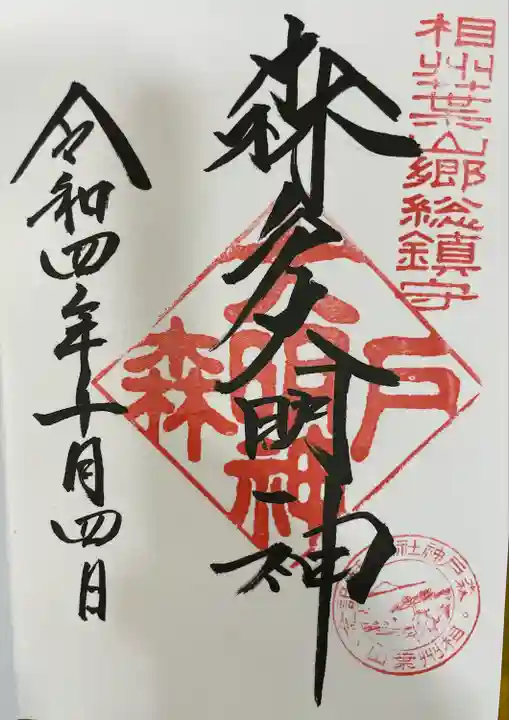 相州葉山郷総鎮守
森戸大明神
令和四年十月四日
森 大明神 戸
森戸神社
相州葉山